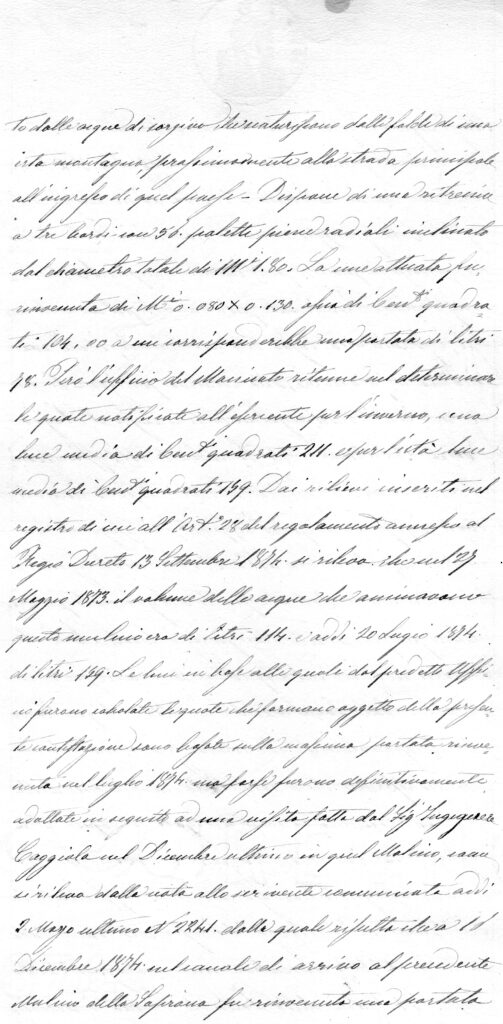 to dalle acque di sorgive che naturiscono dalle falde di una
irta montagna, prossimamente alla strada principale
all'ingresso di quel paese – Dispone di una ritrecine
a tre bordi con 36. palette piane radiali inclinate
dal diametro totale di Mi 1.80. La luce attivata fu
rinvenuta di Mi 0.080 X 0.130. ossia di Centi quadra-
ti 104,00 a cui corrisponderebbe una portata di litri
78. Però l'uffizio del Macinato ritenne nel determinar
le quote notificate all'esercente per l'inverno, una
luce media di Centi quadrati 211. e per l'està luce
media di Centi quadrati 139. Dai rilievi inseriti nel
registro di cui all'Arto. 28 del regolamento annesso al
Regio Decreto 13 Settembre 1874. si rileva che nel 27
Maggio 1873. il volume delle acque che animavano
questo mulino era di litri 114. e addì 20 Luglio 1874.
di litri 139. Le luci in base alle quali dal predetto Uffi-
zio furono calcolate le quote che formano oggetto della presen-
te contestazione sono basate sulla massima portata rinve-
nuta nel luglio 1874. ma forse furono definitivamente
adottate in seguito ad una visita fatta dal Sigr Ingegnere
Caggiola nel Dicembre ultimo in quel Molino, come
si rileva dalla nota allo scrivente comunicata addì
2 Marzo ultimo N 2241. dalla quale risulta che a 18
Dicembre 1874. nel canale di arrivo al precedente
Mulino della Soprana fu rinvenuta una portata